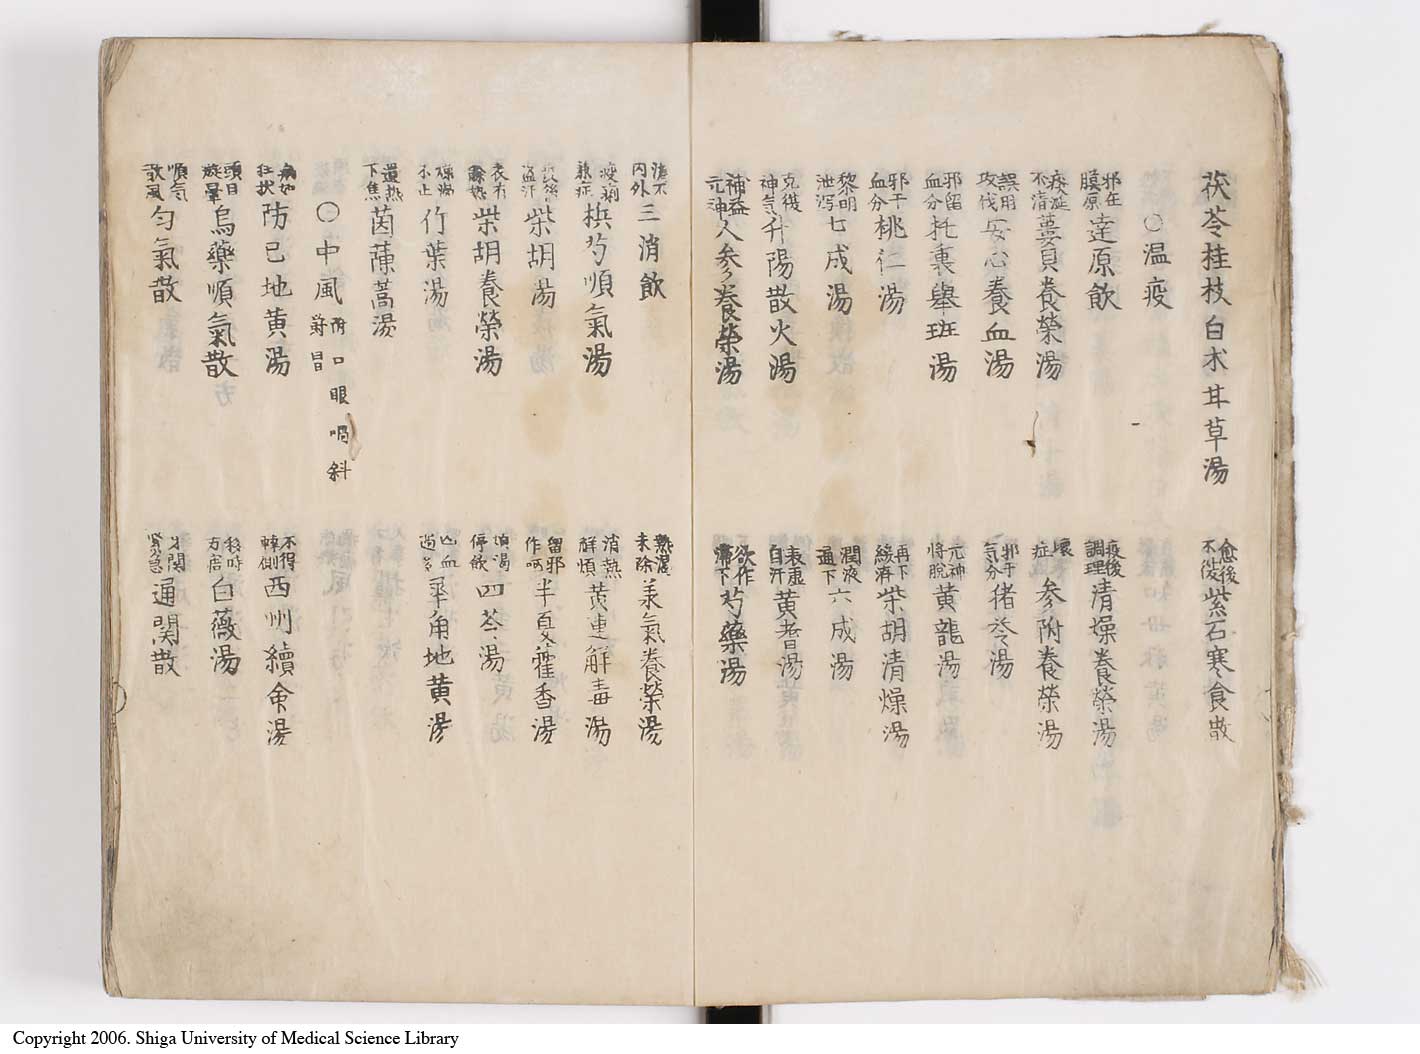 茯苓桂枝白朮甘草湯 愈後不復紫石寒食散
○温疫
邪在膜原達原飲 疫後調理清燥養榮湯
疫涎不清蔞貝養榮湯 壞症參附養榮湯
誤用攻伐安心養血湯 邪干気分猪苓湯
邪留血分托裏舉斑湯 元神將脱黄龍湯
邪干血分桃仁湯 再下緩濟柴胡清燥湯
黎明泄瀉七成湯 潤液通下六成湯
克復神氣升陽散火湯 表虛自汗黄耆湯
補益元神人參養榮湯 欲作滯下芍藥湯
不内外三消飲 熱渴未除承氣養榮湯
痢熱症梹芍順氣湯 消熱解煩黄連解毒湯
疫後盗汗柴胡湯 留邪作呕半夏藿香湯
表有餘熱柴胡養榮湯 煩渴停飲四苓湯
燥渴不止竹葉湯 血過多犀角地黄湯
遺熱下焦茵蔯蒿湯
○中風附口眼喎斜欝冒
病如狂状防已地黄湯 不得轉側西州續命湯
頭目旋暈烏藥順氣散 移時方寤白薇湯
順氣散風匀氣散 牙関緊急通関散
Copyright 2006. Shiga University of Medical Science Library